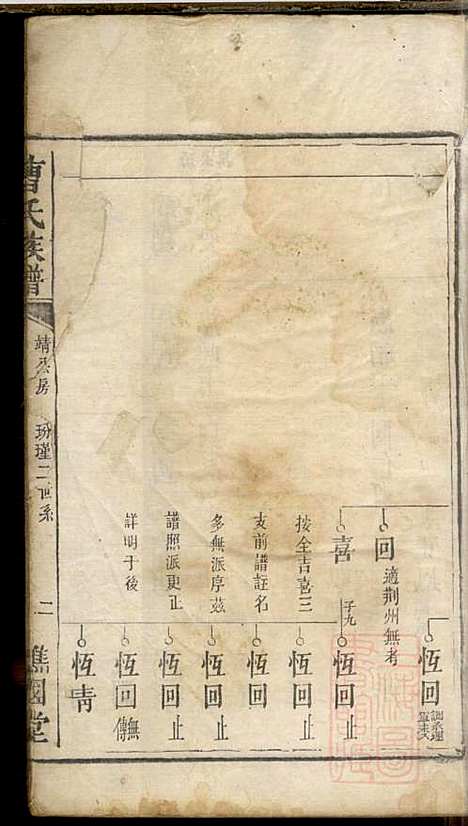 恆回
回適荆州無考
喜 子九
恆回止
按全吉喜三
恆回止
支前譜註名
恆回止
多無派序茲
恆回止
譜照派更正
恆回止
詳明于後
恆回無傳
恆青
曹氏族譜
靖公房 玢瑾二世系
二
譙國堂